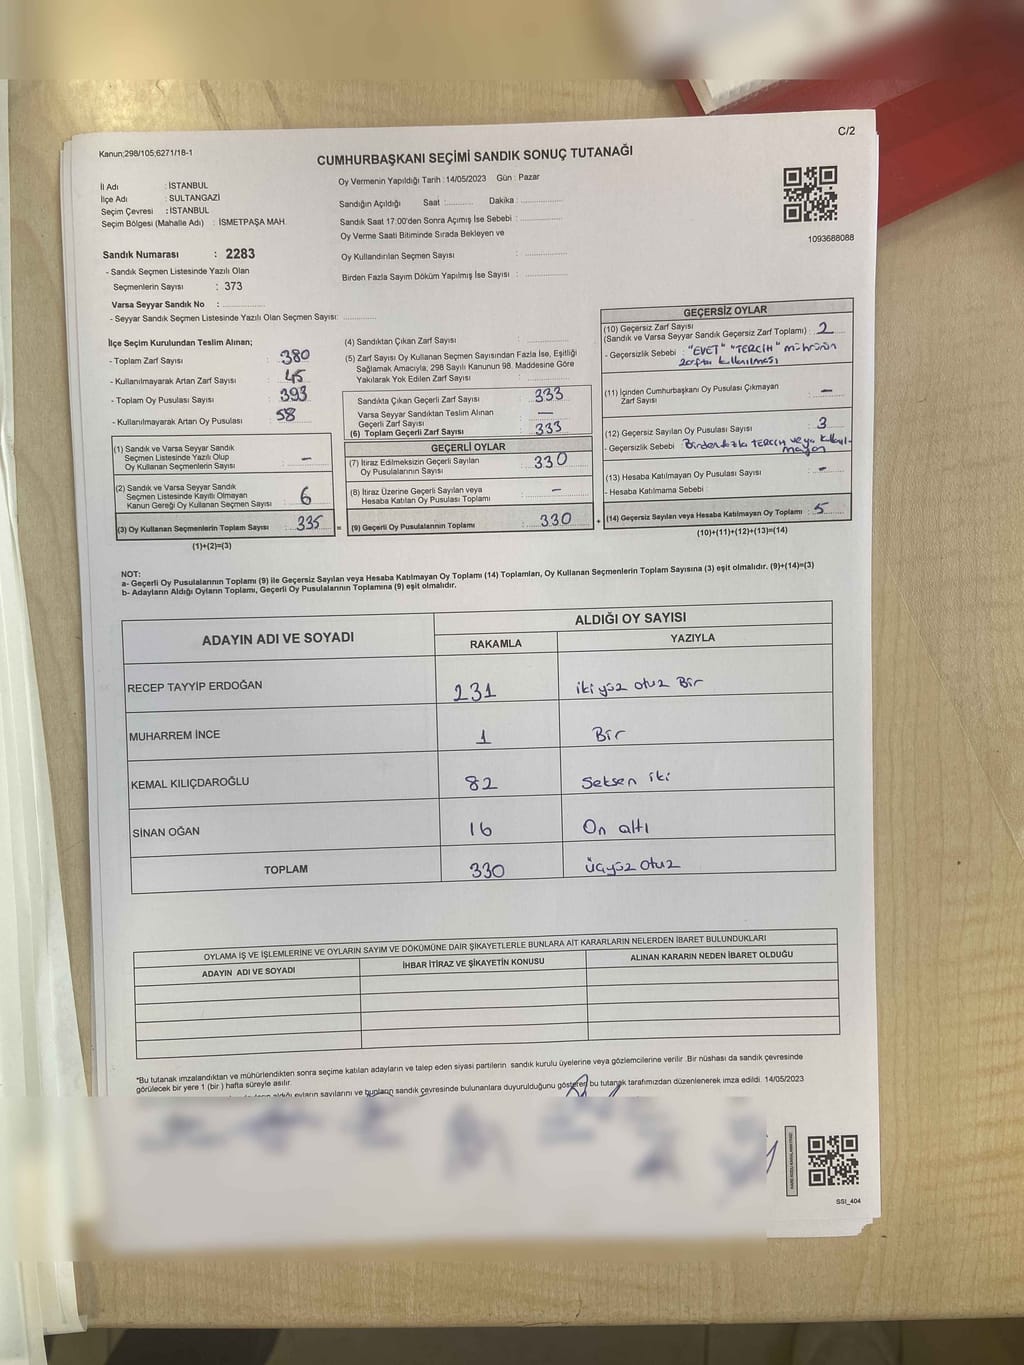 C/2
Kanun;298/105;6271/18-1
CUMHURBAŞKANI SEÇİMİ SANDIK SONUÇ TUTANAĞI
İl Adı : İSTANBUL
İlçe Adı : SULTANGAZİ
Seçim Çevresi : İSTANBUL
Seçim Bölgesi (Mahalle Adı) : İSMETPAŞA MAH.
Oy Vermenin Yapıldığı Tarih : 14/05/2023 Gün : Pazar
Sandığın Açıldığı Saat :.......... Dakika :..............
Sandık Saat 17:00'den Sonra Açımış İse Sebebi :..............
Oy Verme Saati Bitiminde Sırada Bekleyen ve
Oy Kullandırılan Seçmen Sayısı :..............
Birden Fazla Sayım Döküm Yapılmış İse Sayısı :..............
1093688088
Sandık Numarası : 2283
- Sandık Seçmen Listesinde Yazılı Olan
Seçmenlerin Sayısı : 373
Varsa Seyyar Sandık No :..............
- Seyyar Sandık Seçmen Listesinde Yazılı Olan Seçmen Sayısı:..............
İlçe Seçim Kurulundan Teslim Alınan;
- Toplam Zarf Sayısı : 380
- Kullanılmayarak Artan Zarf Sayısı : 45
- Toplam Oy Pusulası Sayısı : 393
- Kullanılmayarak Artan Oy Pusulası : 58
(1) Sandık ve Varsa Seyyar Sandık
Seçmen Listesinde Yazılı Olup
Oy Kullanan Seçmenlerin Sayısı : –
(2) Sandık ve Varsa Seyyar Sandık
Seçmen Listesinde Kayıtlı Olmayan
Kanun Gereği Oy Kullanan Seçmen Sayısı : 6
(3) Oy Kullanan Seçmenlerin Toplam Sayısı : 335 =
(1)+(2)=(3)
(4) Sandıktan Çıkan Zarf Sayısı :..............
(5) Zarf Sayısı Oy Kullanan Seçmen Sayısından Fazla İse, Eşitliği
Sağlamak Amacıyla, 298 Sayılı Kanunun 98. Maddesine Göre
Yakılarak Yok Edilen Zarf Sayısı :..............
Sandıkta Çıkan Geçerli Zarf Sayısı : 333
Varsa Seyyar Sandıktan Teslim Alınan
Geçerli Zarf Sayısı : —
(6) Toplam Geçerli Zarf Sayısı : 333
GEÇERLİ OYLAR
(7) İtiraz Edilmeksizin Geçerli Sayılan
Oy Pusulalarının Sayısı : 330
(8) İtiraz Üzerine Geçerli Sayılan veya
Hesaba Katılan Oy Pusulası Toplamı : –
(9) Geçerli Oy Pusulalarının Toplamı : 330 +
GEÇERSİZ OYLAR
(10) Geçersiz Zarf Sayısı
(Sandık ve Varsa Seyyar Sandık Geçersiz Zarf Toplamı) : 2
- Geçersizlik Sebebi : "EVET" "TERCİH" mührünün
zarfta kullanılması
(11) İçinden Cumhurbaşkanı Oy Pusulası Çıkmayan
Zarf Sayısı : –
(12) Geçersiz Sayılan Oy Pusulası Sayısı : 3
- Geçersizlik Sebebi : Birden fazla TERCİH veya kullanıl-
mayan
(13) Hesaba Katılmayan Oy Pusulası Sayısı : –
- Hesaba Katılmama Sebebi :
(14) Geçersiz Sayılan veya Hesaba Katılmayan Oy Toplamı : 5
(10)+(11)+(12)+(13)=(14)
NOT:
a- Geçerli Oy Pusulalarının Toplamı (9) ile Geçersiz Sayılan veya Hesaba Katılmayan Oy Toplamı (14) Toplamları, Oy Kullanan Seçmenlerin Toplam Sayısına (3) eşit olmalıdır. (9)+(14)=(3)
b- Adayların Aldığı Oyların Toplamı, Geçerli Oy Pusulalarının Toplamına (9) eşit olmalıdır.
ADAYIN ADI VE SOYADI ALDIĞI OY SAYISI
RAKAMLA YAZIYLA
RECEP TAYYİP ERDOĞAN 231 ikiyüz otuz Bir
MUHARREM İNCE 1 Bir
KEMAL KILIÇDAROĞLU 82 Seksen iki
SİNAN OĞAN 16 On altı
TOPLAM 330 üçyüz otuz
OYLAMA İŞ VE İŞLEMLERİNE VE OYLARIN SAYIM VE DÖKÜMÜNE DAİR ŞİKAYETLERLE BUNLARA AİT KARARLARIN NELERDEN İBARET BULUNDUKLARI
ADAYIN ADI VE SOYADI İHBAR İTİRAZ VE ŞİKAYETİN KONUSU ALINAN KARARIN NEDEN İBARET OLDUĞU
*Bu tutanak imzalandıktan ve mühürlendikten sonra seçime katılan adayların ve talep eden siyasi partilerin sandık kurulu üyelerine veya gözlemcilerine verilir. Bir nüshası da sandık çevresinde
görülecek bir yere 1 (bir) hafta süreyle asılır.
oyların sayılarını ve bunların sandık çevresinde bulunanlara duyurulduğunu gösteren bu tutanak tarafımızdan düzenlenerek imza edildi. 14/05/2023
SSI_404